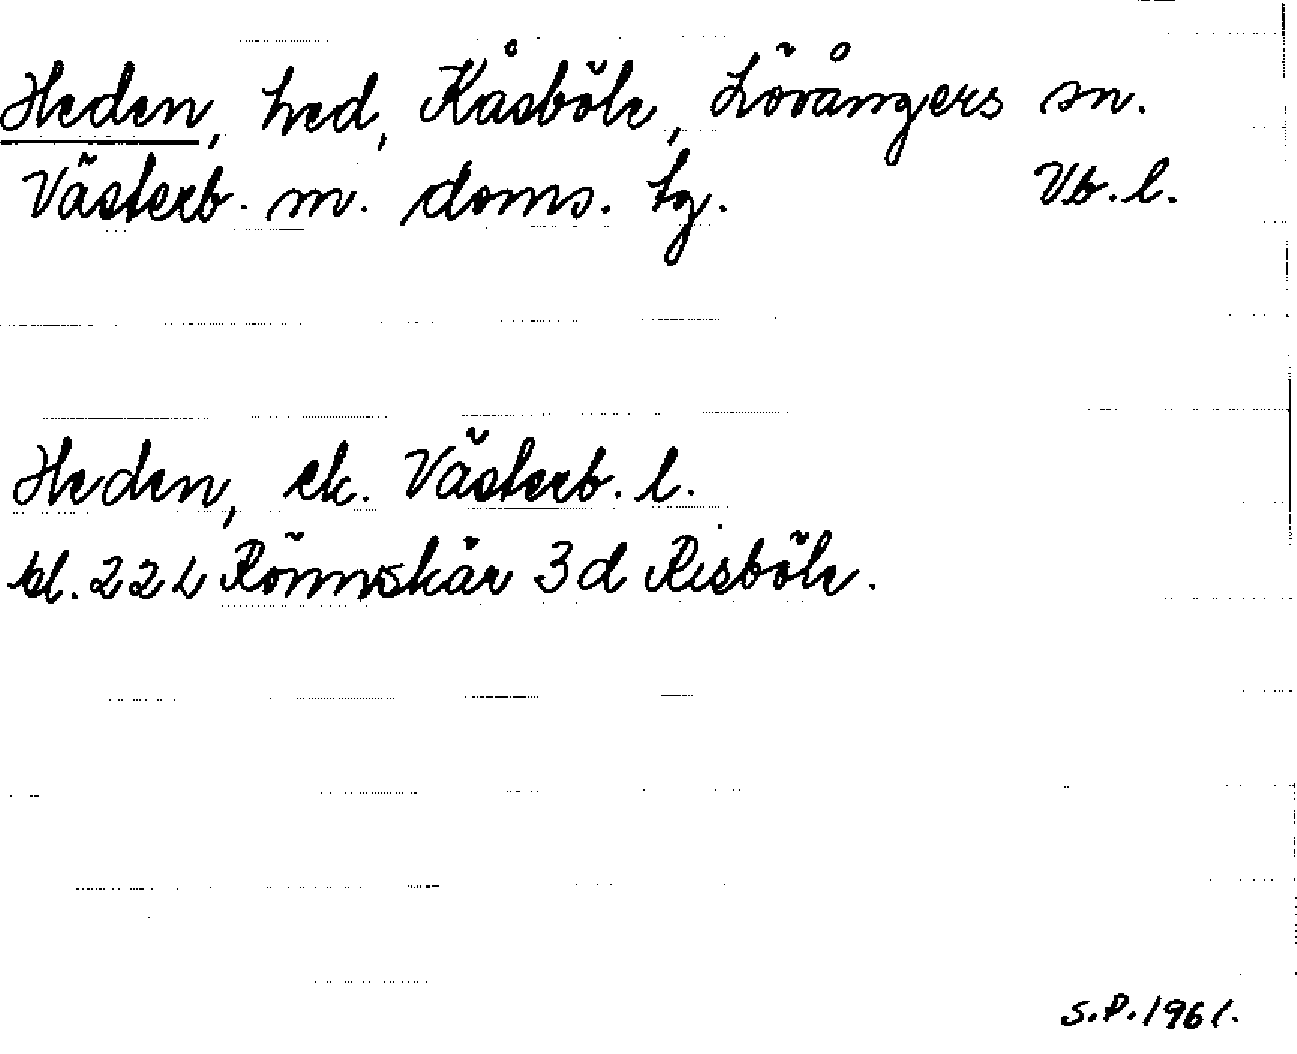 Heden, hed, Kåsböle, Lövångers sn.
Västerb. m. doms. tg. Vb. l.
Heden, ek. Västerb. l.
bl. 22 L Rönnskär 3d Risböle.
S.P. 1961.